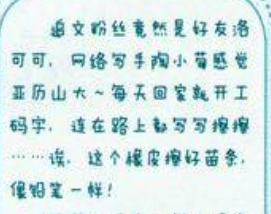 追文粉丝竟然是好友洛
可可，网络写手陶小菊感觉
亚历山大~每天回家就开工
码字，连在路上都写写擦擦
……诶，这个橡皮擦好苗条，
像铅笔一样！